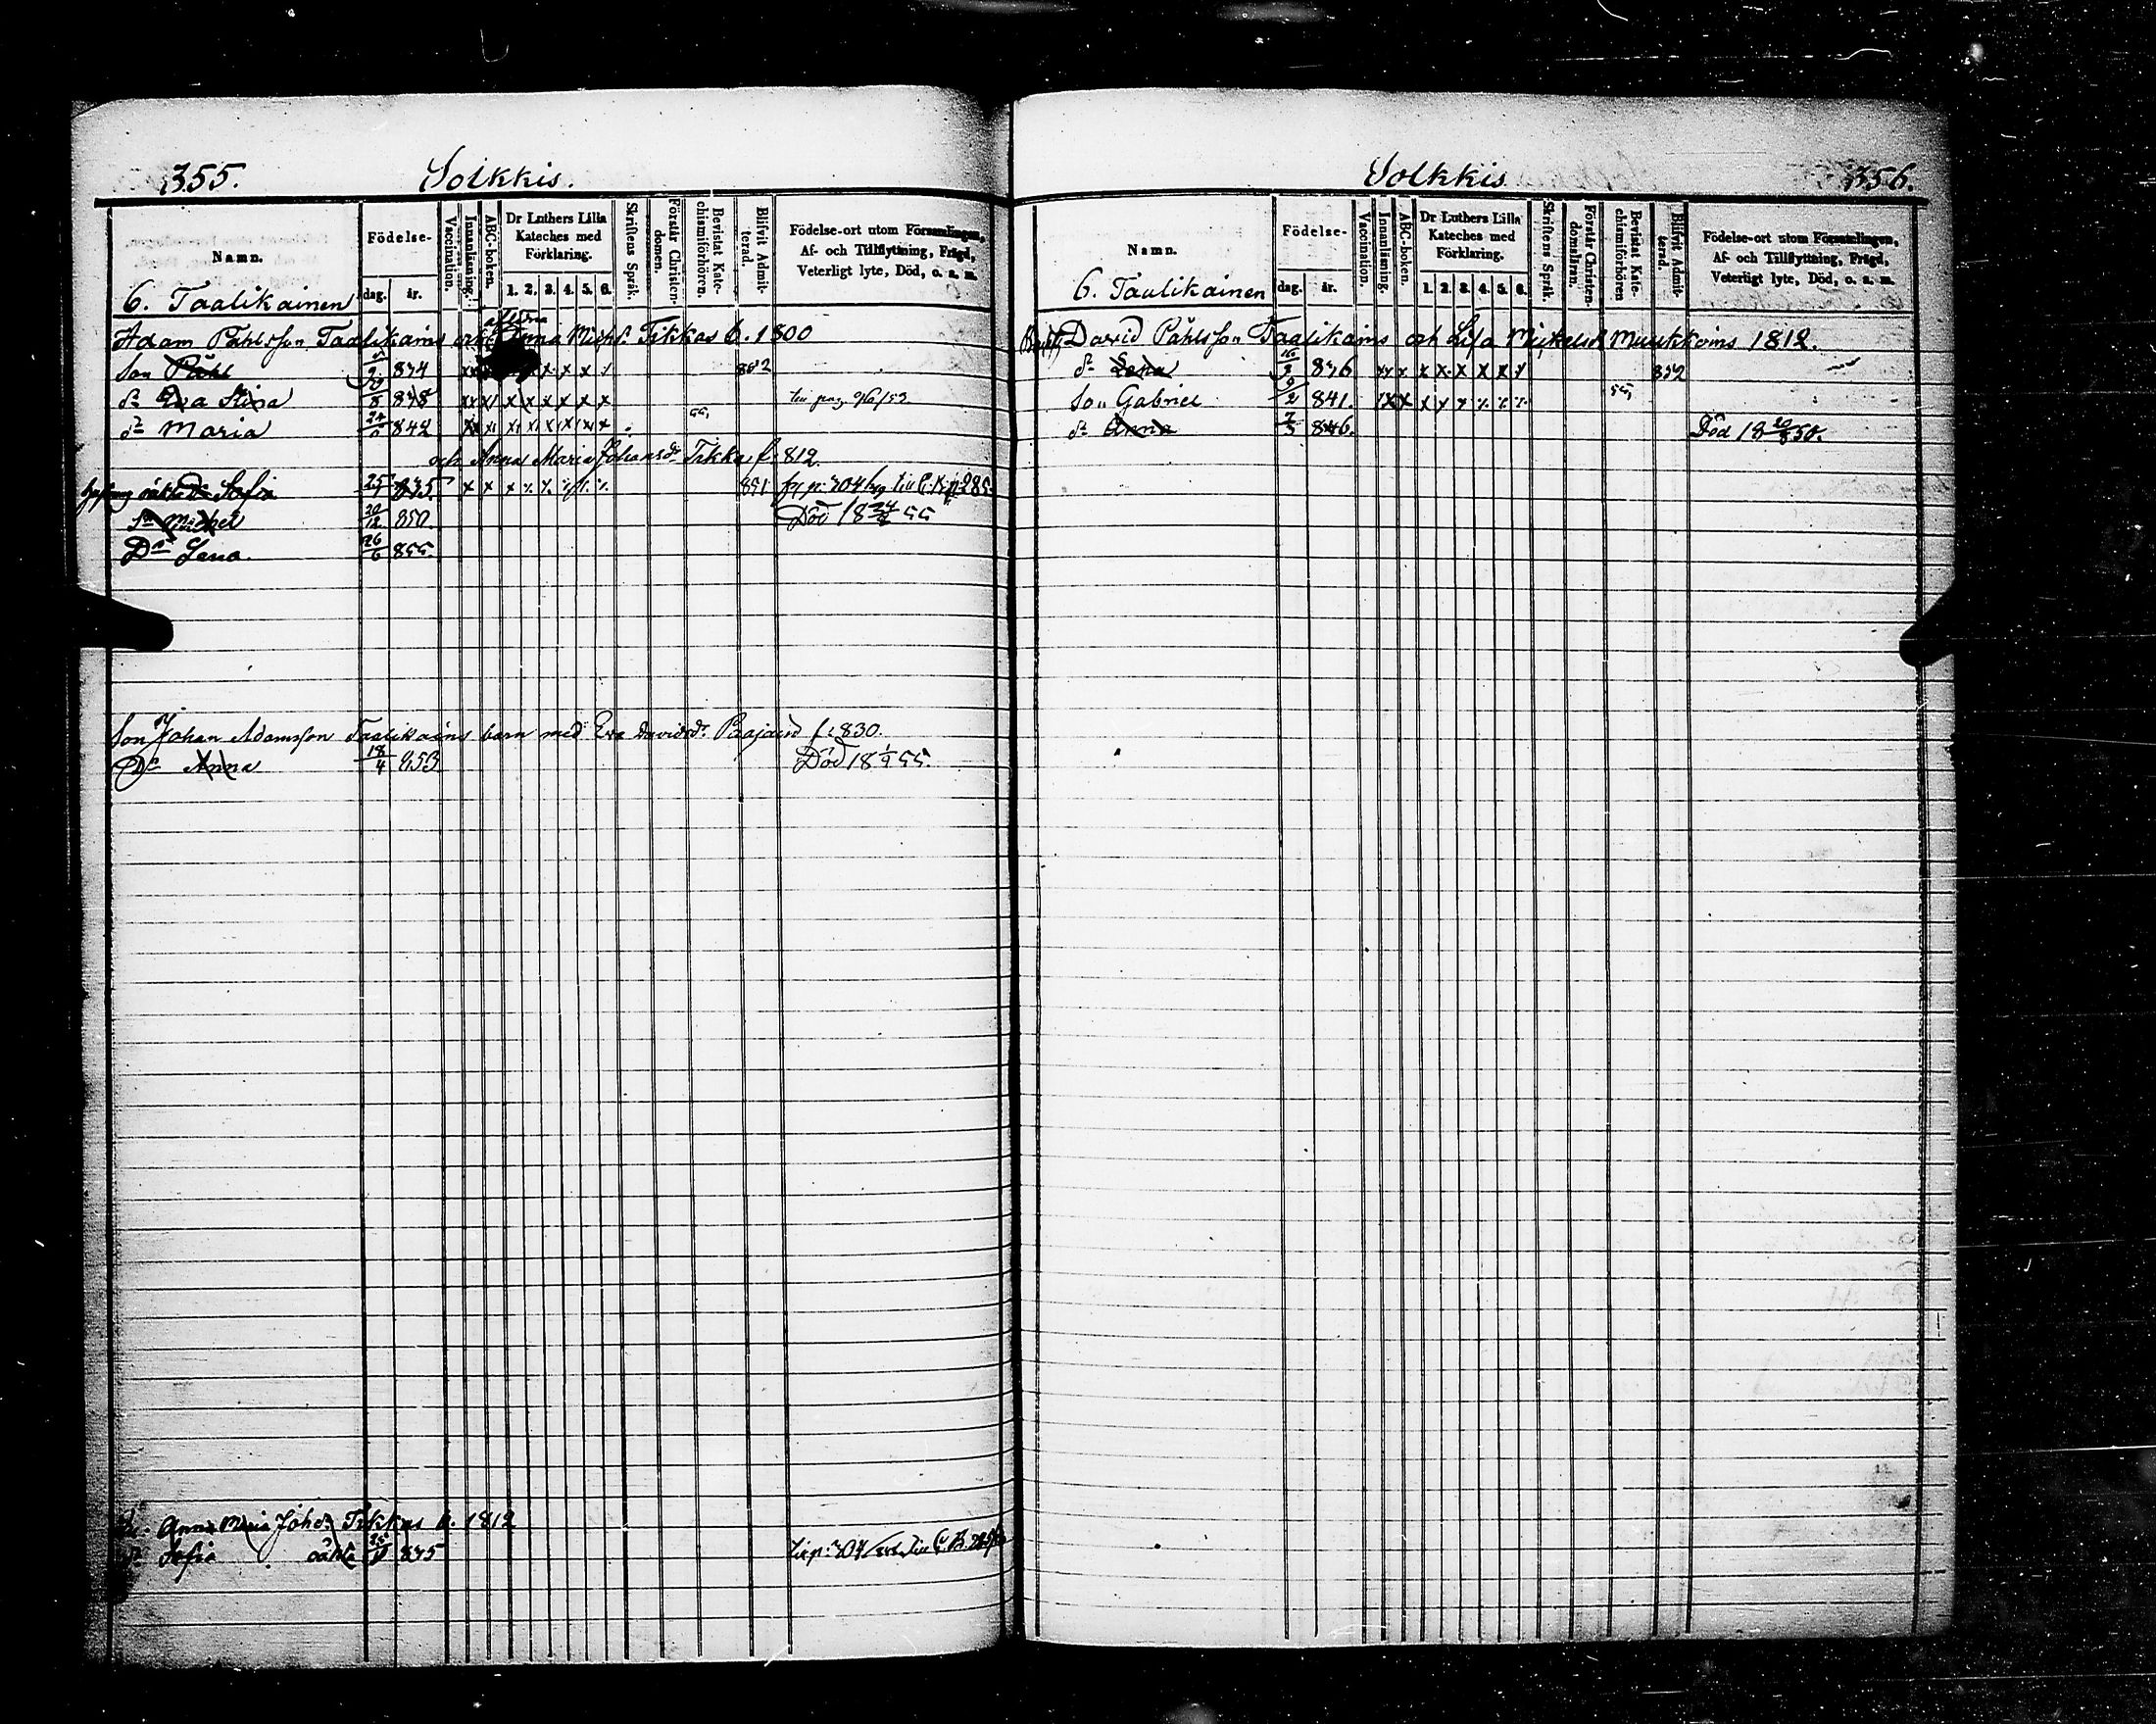 355. Solkkis.
Namn.
Födelse-
dag. år.
Vaccination.
Innanläsning.
ABC-boken.
Dr Luthers Lilla Kateches med Förklaring.
1. 2. 3. 4. 5. 6.
Skriftens Språk.
Förstår Christendomen.
Bevistat Katechismiförhören.
Blifvit Admitterad.
Födelse-ort utom Församlingen,
Af- och Tillflyttning, Frägd,
Veterligt lyte, Död, o. s. m.
6. Taalikainen
Adam Påhlsson Taalikains och Anna Michs. Tikkas b. 1800
Son Påhl 834 x x x x 852
dr Eva Stina 838 x x x x x x x x
dr Maria 24 842 x x x x x x x x 55,
och Anna Maria Johansdr Tikka f. 812
oäkta Dr Sofia 25 835 x x x 851
sn Michel 20/12 850 Död 18 24 55
Dr Lena 26/6 855.
Son Johan Adamsson Taalikains barn med Eva Davidsdr. f: 830.
Dr Anna 18/4 853 Död 18 1/9 55.
Anna Maria Johdr Tikkas b. 1812
dr Sofia oäkta 25 835
Solkkis 356.
Namn.
Födelse-
dag. år.
Vaccination.
Innanläsning.
ABC-boken.
Dr Luthers Lilla Kateches med Förklaring.
1. 2. 3. 4. 5. 6.
Skriftens Språk.
Förstår Christendomsläran.
Bevistat Katechismiförhören
Blifvit Admitterad.
Födelse-ort utom Församlingen,
Af- och Tillflyttning, Frägd,
Veterligt lyte, Död, o. s. m.
6. Taalikainen
David Påhlsson Taalikains och Lisa Mickelsd. 1812.
dr Lena 16 836 x x x x x x x x x 852
Son Gabriel 9/2 841. x x x x x 55,
dr Anna 7/3 846. Död 18 20/8 50.